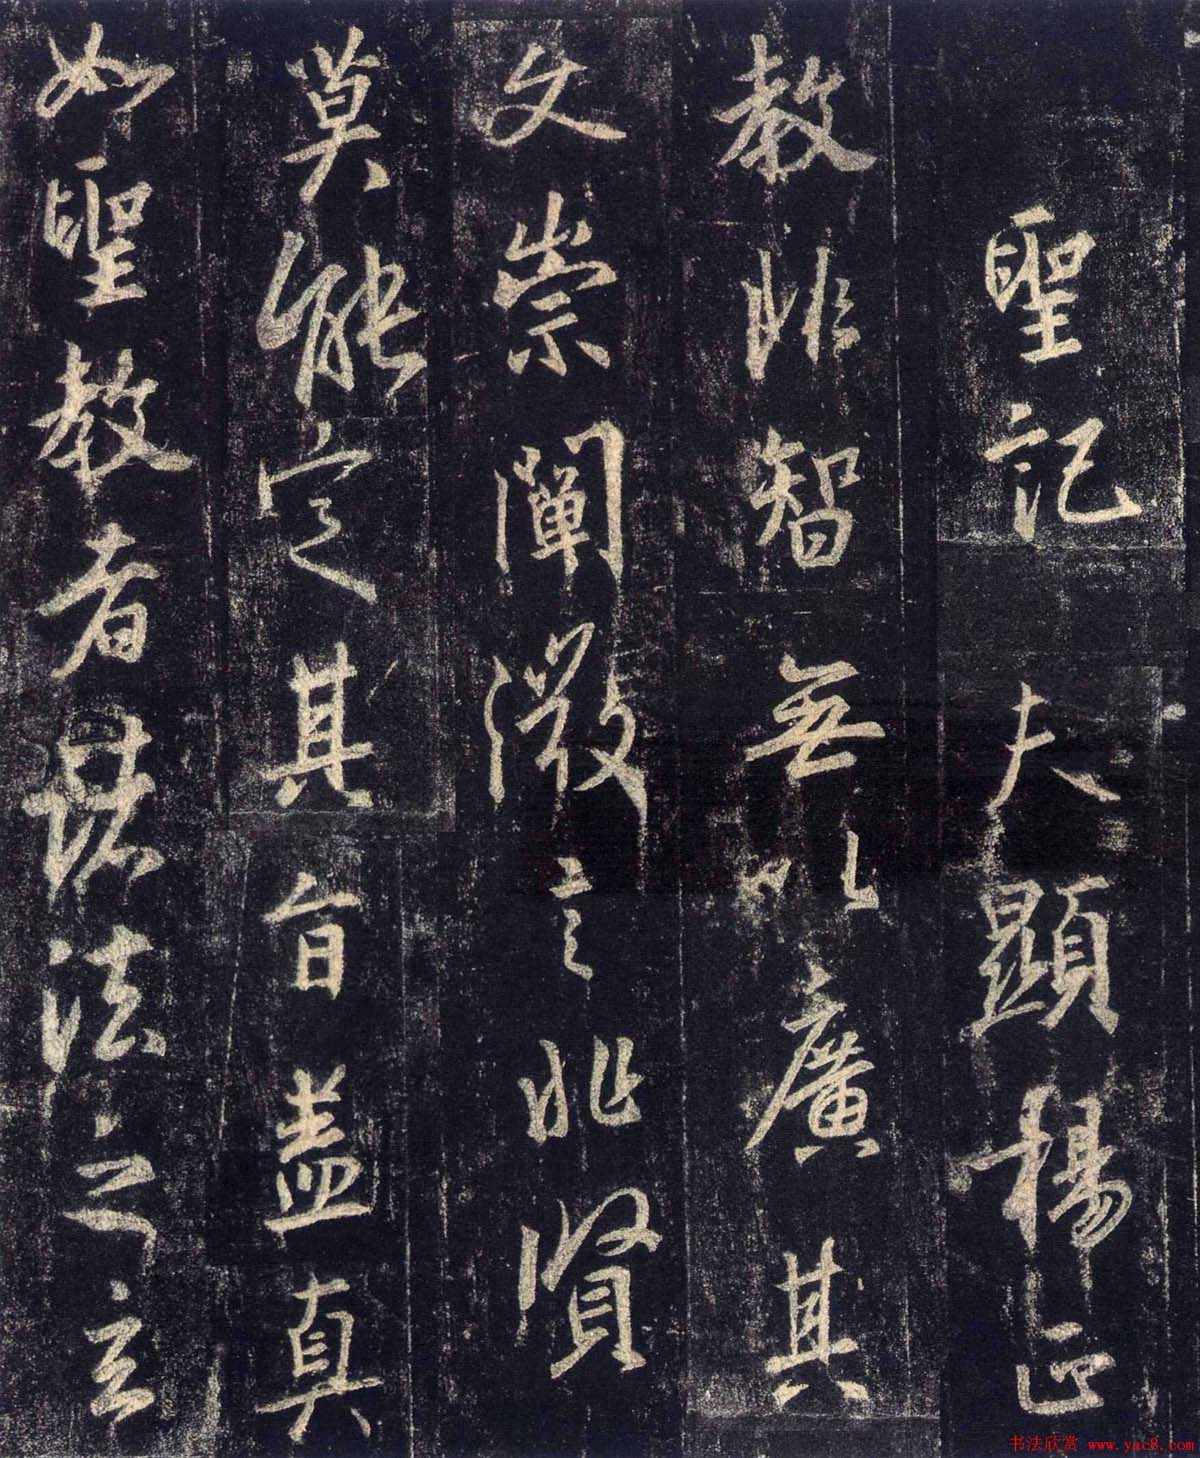 聖記 夫顯揚正
教非智無以廣其
文崇闡微言非賢
莫能定其旨盖真
如聖教者諸法之玄
书法欣赏 www.yac8.com